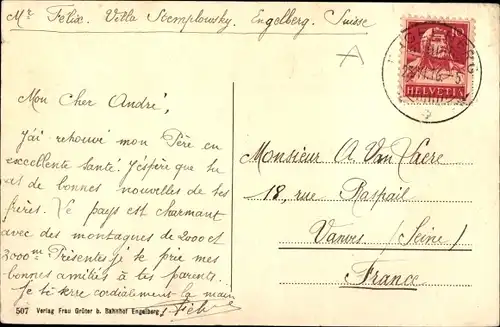 Mr Félix. Villa Stemplowsky. Engelberg. Suisse
10
HELVETIA
Mon Cher André,
J'ai retrouvé mon Père en
excellente santé. J'espère que tu
as de bonnes nouvelles de tes
frères. Le pays est charmant
avec des montagnes de 2000 et
3000m Présentes je te prie mes
bonnes amitiés à tes parents.
Je te serre cordialement la main
Félix
Monsieur A. Van Haere
18, rue Raspail
Vanves (Seine)
France
507 Verlag Frau Grüter b. Bahnhof Engelberg